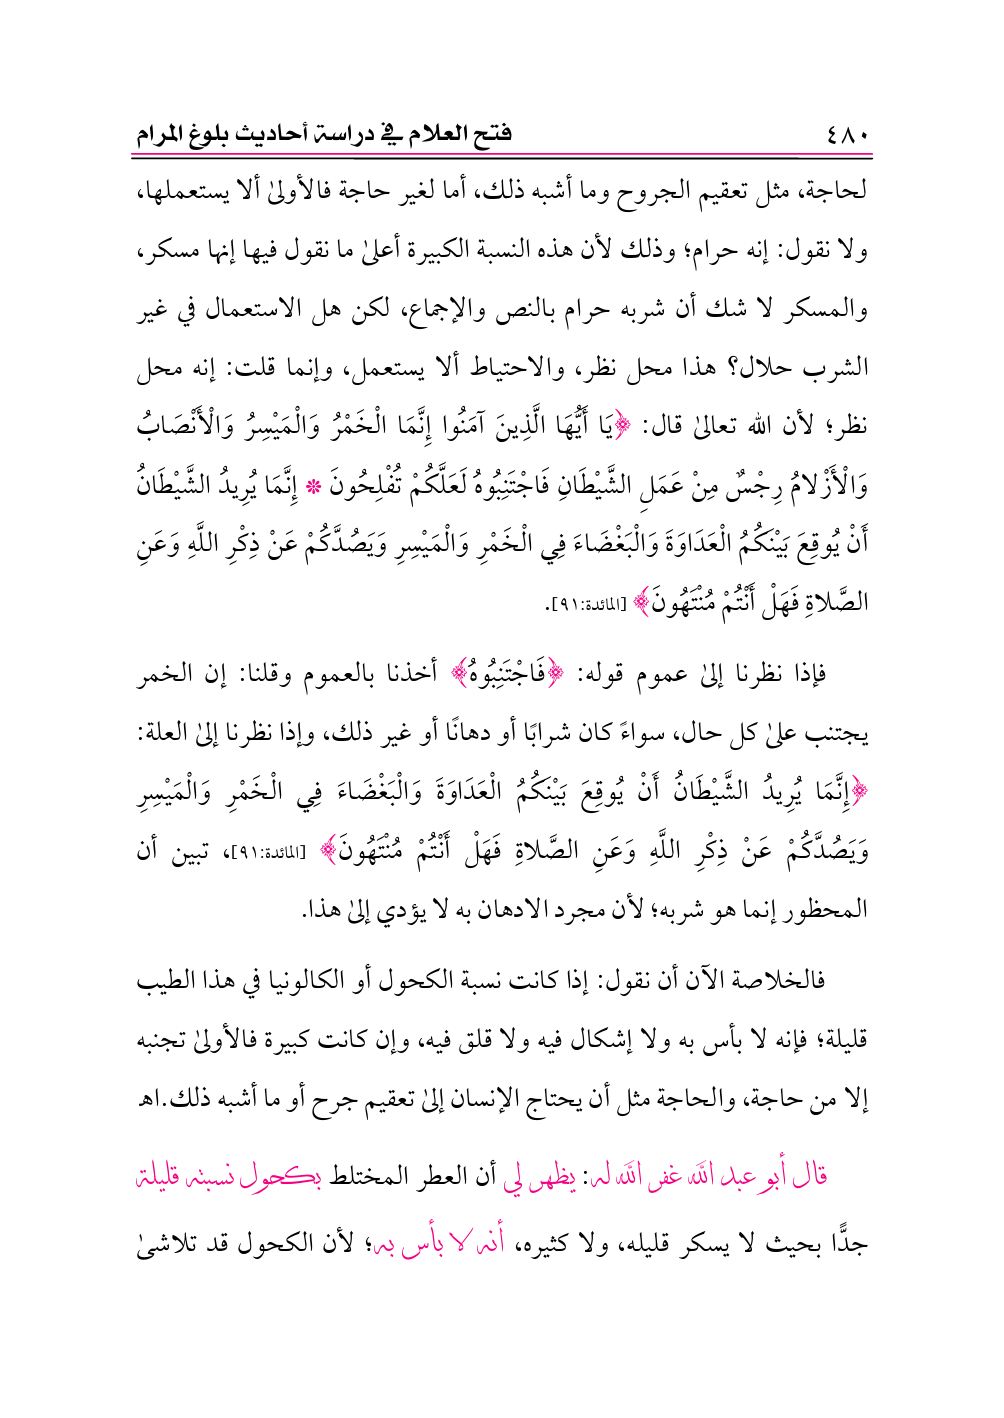 ٤٨٠ فتح العلام في دراسة أحاديث بلوغ المرام
لحاجة، مثل تعقيم الجروح وما أشبه ذلك، أما لغير حاجة فالأولىٰ ألا يستعملها،
ولا نقول: إنه حرام؛ وذلك لأن هذه النسبة الكبيرة أعلىٰ ما نقول فيها إنها مسكر،
والمسكر لا شك أن شربه حرام بالنص والإجماع، لكن هل الاستعمال في غير
الشرب حلال؟ هذا محل نظر، والاحتياط ألا يستعمل، وإنما قلت: إنه محل
نظر؛ لأن الله تعالىٰ قال: ﴿يَا أَيُّهَا الَّذِينَ آمَنُوا إِنَّمَا الْخَمْرُ وَالْمَيْسِرُ وَالْأَنْصَابُ
وَالْأَزْلَامُ رِجْسٌ مِنْ عَمَلِ الشَّيْطَانِ فَاجْتَنِبُوهُ لَعَلَّكُمْ تُفْلِحُونَ * إِنَّمَا يُرِيدُ الشَّيْطَانُ
أَنْ يُوقِعَ بَيْنَكُمُ الْعَدَاوَةَ وَالْبَغْضَاءَ فِي الْخَمْرِ وَالْمَيْسِرِ وَيَصُدَّكُمْ عَنْ ذِكْرِ اللَّهِ وَعَنِ
الصَّلَاةِ فَهَلْ أَنْتُمْ مُنْتَهُونَ﴾ [المائدة:٩١].
فإذا نظرنا إلىٰ عموم قوله: ﴿فَاجْتَنِبُوهُ﴾ أخذنا بالعموم وقلنا: إن الخمر
يجتنب علىٰ كل حال، سواءً كان شرابًا أو دهانًا أو غير ذلك، وإذا نظرنا إلىٰ العلة:
﴿إِنَّمَا يُرِيدُ الشَّيْطَانُ أَنْ يُوقِعَ بَيْنَكُمُ الْعَدَاوَةَ وَالْبَغْضَاءَ فِي الْخَمْرِ وَالْمَيْسِرِ
وَيَصُدَّكُمْ عَنْ ذِكْرِ اللَّهِ وَعَنِ الصَّلَاةِ فَهَلْ أَنْتُمْ مُنْتَهُونَ﴾ [المائدة:٩١]، تبين أن
المحظور إنما هو شربه؛ لأن مجرد الادهان به لا يؤدي إلىٰ هذا.
فالخلاصة الآن أن نقول: إذا كانت نسبة الكحول أو الكالونيا في هذا الطيب
قليلة؛ فإنه لا بأس به ولا إشكال فيه ولا قلق فيه، وإن كانت كبيرة فالأولىٰ تجنبه
إلا من حاجة، والحاجة مثل أن يحتاج الإنسان إلىٰ تعقيم جرح أو ما أشبه ذلك.اهـ
قال أبو عبد الله غفر الله له: يظهر لي أن العطر المختلط بكحول نسبته قليلة
جدًّا بحيث لا يسكر قليله، ولا كثيره، أنه لا بأس به؛ لأن الكحول قد تلاشىٰ